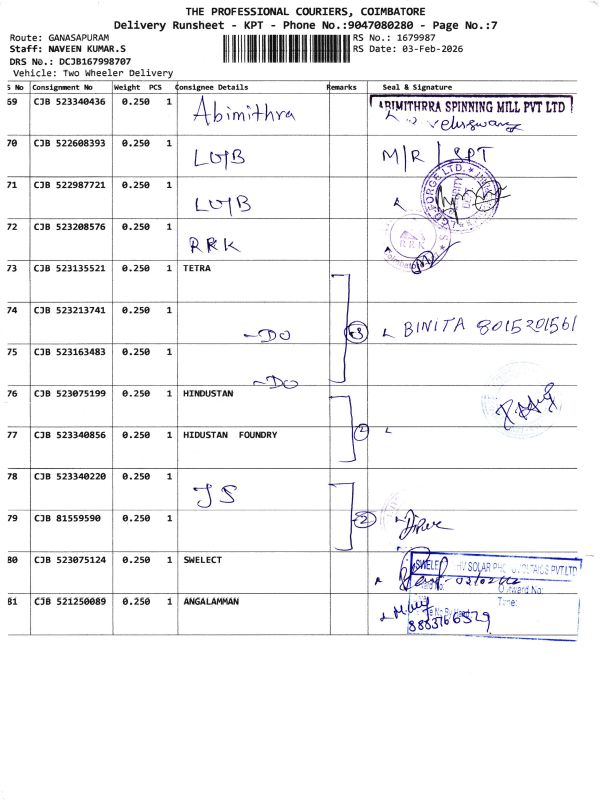 THE PROFESSIONAL COURIERS, COIMBATORE
Delivery Runsheet - KPT - Phone No.:9047080280 - Page No.:7
Route: GANASAPURAM RS No.: 1679987
Staff: NAVEEN KUMAR.S RS Date: 03-Feb-2026
DRS No.: DCJB167998707
Vehicle: Two Wheeler Delivery
S No Consignment No Weight PCS Consignee Details Remarks Seal & Signature
69 CJB 523340436 0.250 1 Abimithra ABIMITHRRA SPINNING MILL PVT LTD
70 CJB 522608393 0.250 1 LGB M/R/SPT
71 CJB 522987721 0.250 1 LGB FORGE LTD.
72 CJB 523208576 0.250 1 RRK RRK
73 CJB 523135521 0.250 1 TETRA
74 CJB 523213741 0.250 1 -DO 3 BINITA 8015201561
75 CJB 523163483 0.250 1 -DO
76 CJB 523075199 0.250 1 HINDUSTAN
77 CJB 523340856 0.250 1 HIDUSTAN FOUNDRY 2
78 CJB 523340220 0.250 1 JS
79 CJB 81559590 0.250 1 2
80 CJB 523075124 0.250 1 SWELECT SWELECT HHV SOLAR PHOTOVOLTAICS PVT LTD
Outward No:
81 CJB 521250089 0.250 1 ANGALAMMAN Time:
By Hand